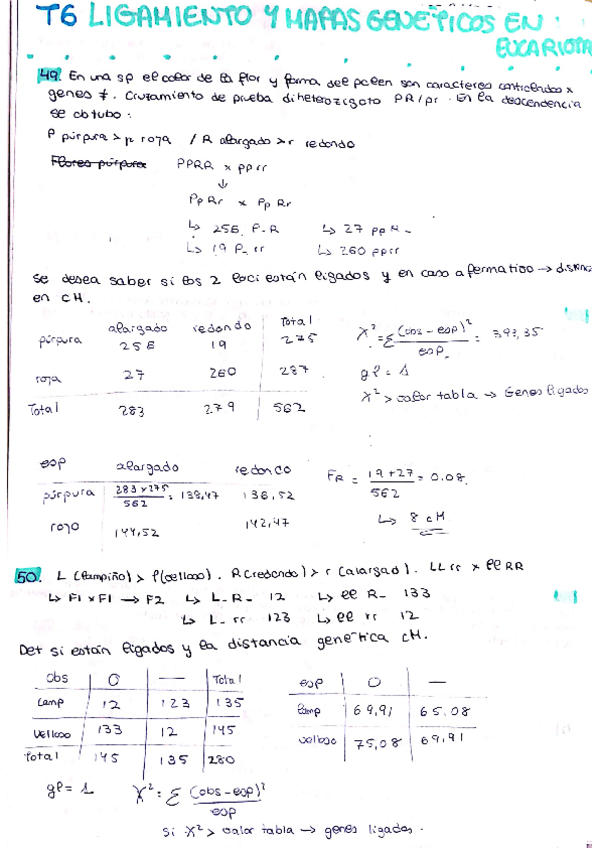 T6 LIGAMIENTO Y MAPAS GENÉTICOS EN
EUCARIOTA
49. En una sp el color de la flor y forma del polen son caracteres controlados x
genes ≠. Cruzamiento de prueba diheterozigoto PR/pr. En la descendencia
se obtubo:
P púrpura > p roja / R alargado > r redondo
Flores púrpura PPRR x pprr
↓
PpRr x PpRr
↳ 256 P-R ↳ 27 ppR-
↳ 19 P-rr ↳ 260 pprr
Se desea saber si los 2 loci están ligados y en caso afermatico → distanc
en cM.
alargado redondo Total
púrpura 256 19 275
roja 27 260 287
Total 283 279 562
X² = Σ (obs - esp)² / esp = 393,35
gl = 1
X² > valor tabla → Genes ligados
esp alargado redondo
púrpura 283 x 275 / 562 = 138,47 136,52
rojo 144,52 142,47
FR = 19 + 27 / 562 = 0.08.
↳ 8 cM
50. L (lampiño) > l (velloso). R (redondo) > r (alargad). LL rr x ll RR
↳ F1 x F1 → F2 ↳ L-R- 12 ↳ ll R- 133
↳ L-rr 123 ↳ ll rr 12
Det si están ligados y la distancia genética cM.
obs O — Total
Lamp 12 123 135
Velloso 133 12 145
Total 145 135 280
esp O —
Lamp 69,91 65,08
velloso 75,08 69,91
gl = 1 X² = Σ (obs - esp)² / esp
Si X² > valor tabla → genes ligados.